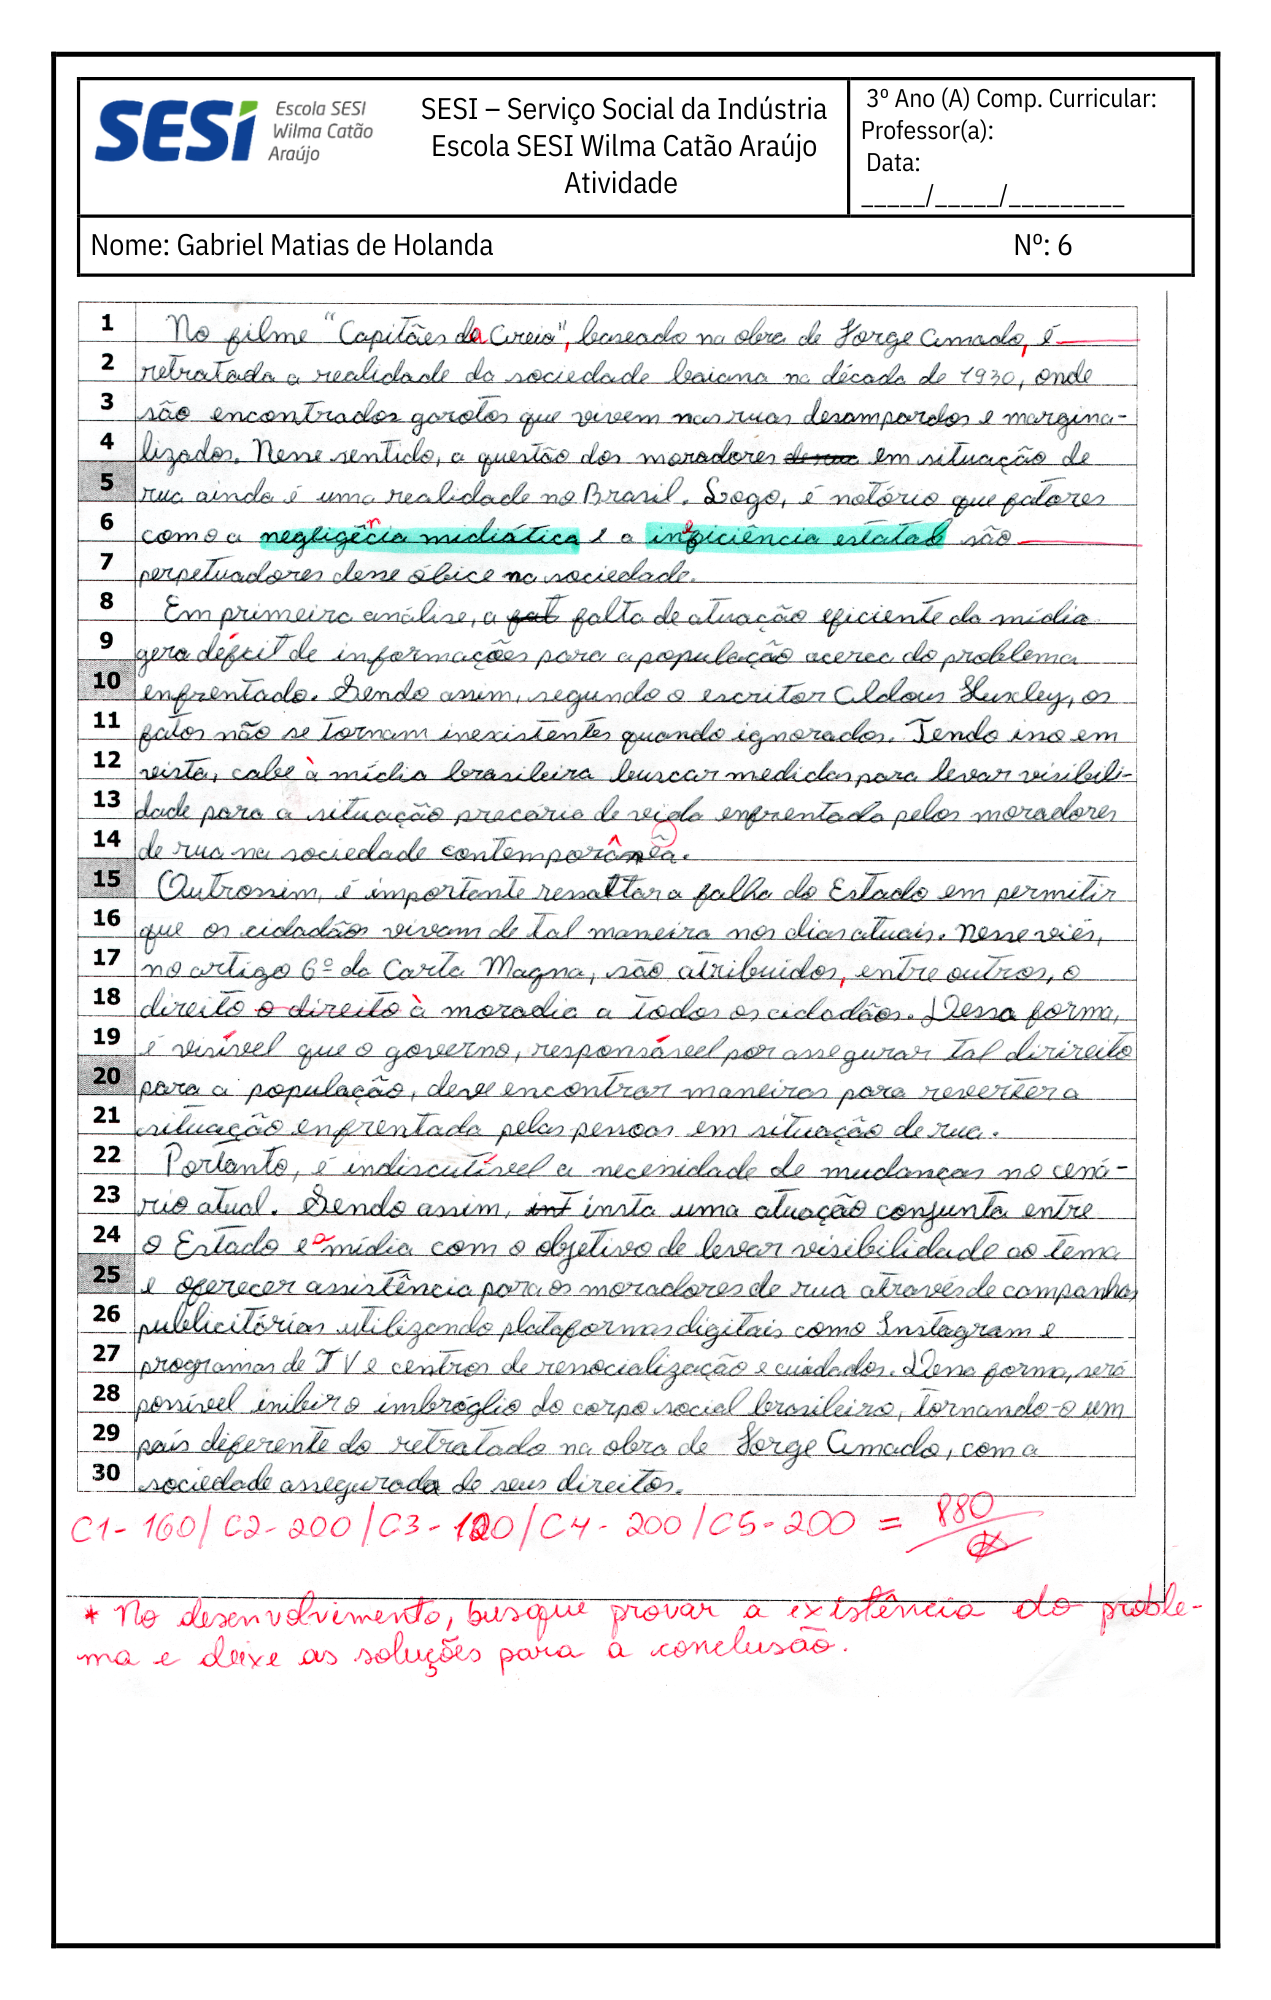 SESI Escola SESI
Wilma Catão
Araújo
SESI – Serviço Social da Indústria
Escola SESI Wilma Catão Araújo
Atividade
3º Ano (A) Comp. Curricular:
Professor(a):
Data:
_____/_____/_________
Nome: Gabriel Matias de Holanda Nº: 6
1 No filme "Capitães da Areia", baseado na obra de Jorge Amado, é
2 retratada a realidade da sociedade baiana na década de 1930, onde
3 são encontrados garotos que vivem nas ruas desampardos e margina-
4 lizados. Nesse sentido, a questão dos moradores de rua em situação de
5 rua ainda é uma realidade no Brasil. Logo, é notório que fatores
6 como a negligêcia midiática e a inficiência estatal são
7 perpetuadores desse óbice na sociedade.
8 Em primeira análise, a fat falta de atuação eficiente da mídia
9 gera déficit de informações para a população acerca do problema
10 enfrentado. Sendo assim, segundo o escritor Aldous Huxley, os
11 fatos não se tornam inexistentes quando ignorados. Tendo isso em
12 vista, cabe à mídia brasileira buscar medidas para levar visibili-
13 dade para a situação precária de vida enfrentada pelos moradores
14 de rua na sociedade contemporânêa.
15 Outrossim, é importante ressaltar a falha do Estado em permitir
16 que os cidadãos vivam de tal maneira nos dias atuais. Nesse viés,
17 no artigo 6º da Carta Magna, são atribuidos, entre outros, o
18 direito o direito à moradia a todos os cidadãos. Dessa forma,
19 é visível que o governo, responsável por assegurar tal dirireito
20 para a população, deve encontrar maneiras para reverter a
21 situação enfrentada pelas pessoas em situação de rua.
22 Portanto, é indiscutível a necessidade de mudanças no cená-
23 rio atual. Sendo assim, int insta uma atuação conjunta entre
24 o Estado e a mídia com o objetivo de levar visibilidade ao tema
25 e oferecer assistência para os moradores de rua através de campanhas
26 publicitórias utilizando plataformas digitais como Instagram e
27 programas de TV e centros de ressocialização e cuidados. Dessa forma, será
28 possível inibir o imbróglio do corpo social brasileiro, tornando-o um
29 país diferente do retratado na obra de Jorge Amado, com a
30 sociedade assegurada de seus direitos.
C1- 160/ C2- 200 /C3- 120/ C4- 200 /C5- 200 = 880
* No desenvolvimento, busque provar a existência do proble-
ma e deixe as soluções para a conclusão.